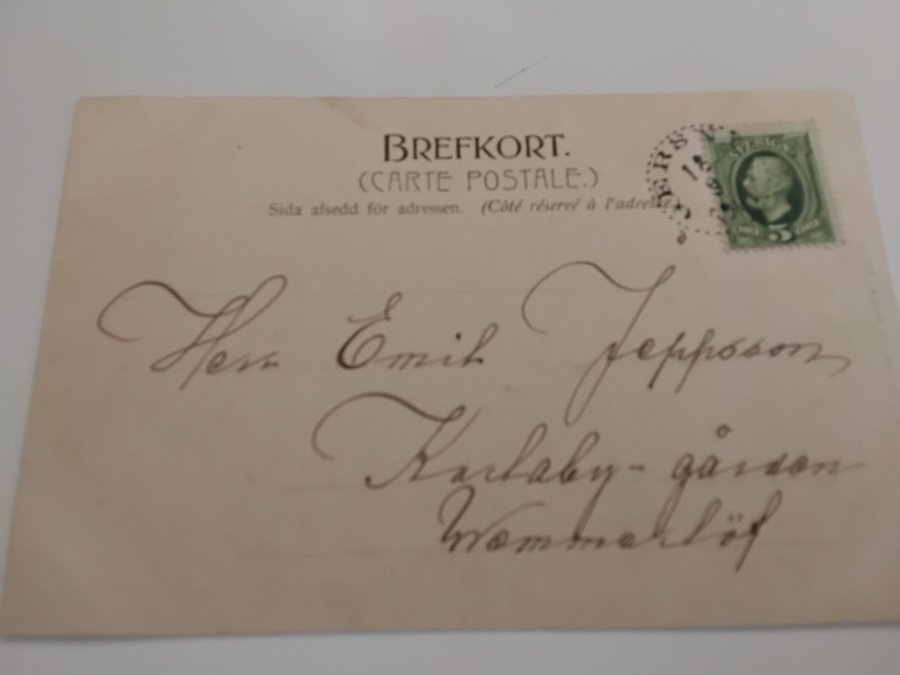 BREFKORT.
(CARTE POSTALE.)
Sida afsedd för adressen. (Côté réservé à l'adresse
SVERIGE
5
Herr Emil Jeppsson
Karlaby-gården
Wemmerlöf